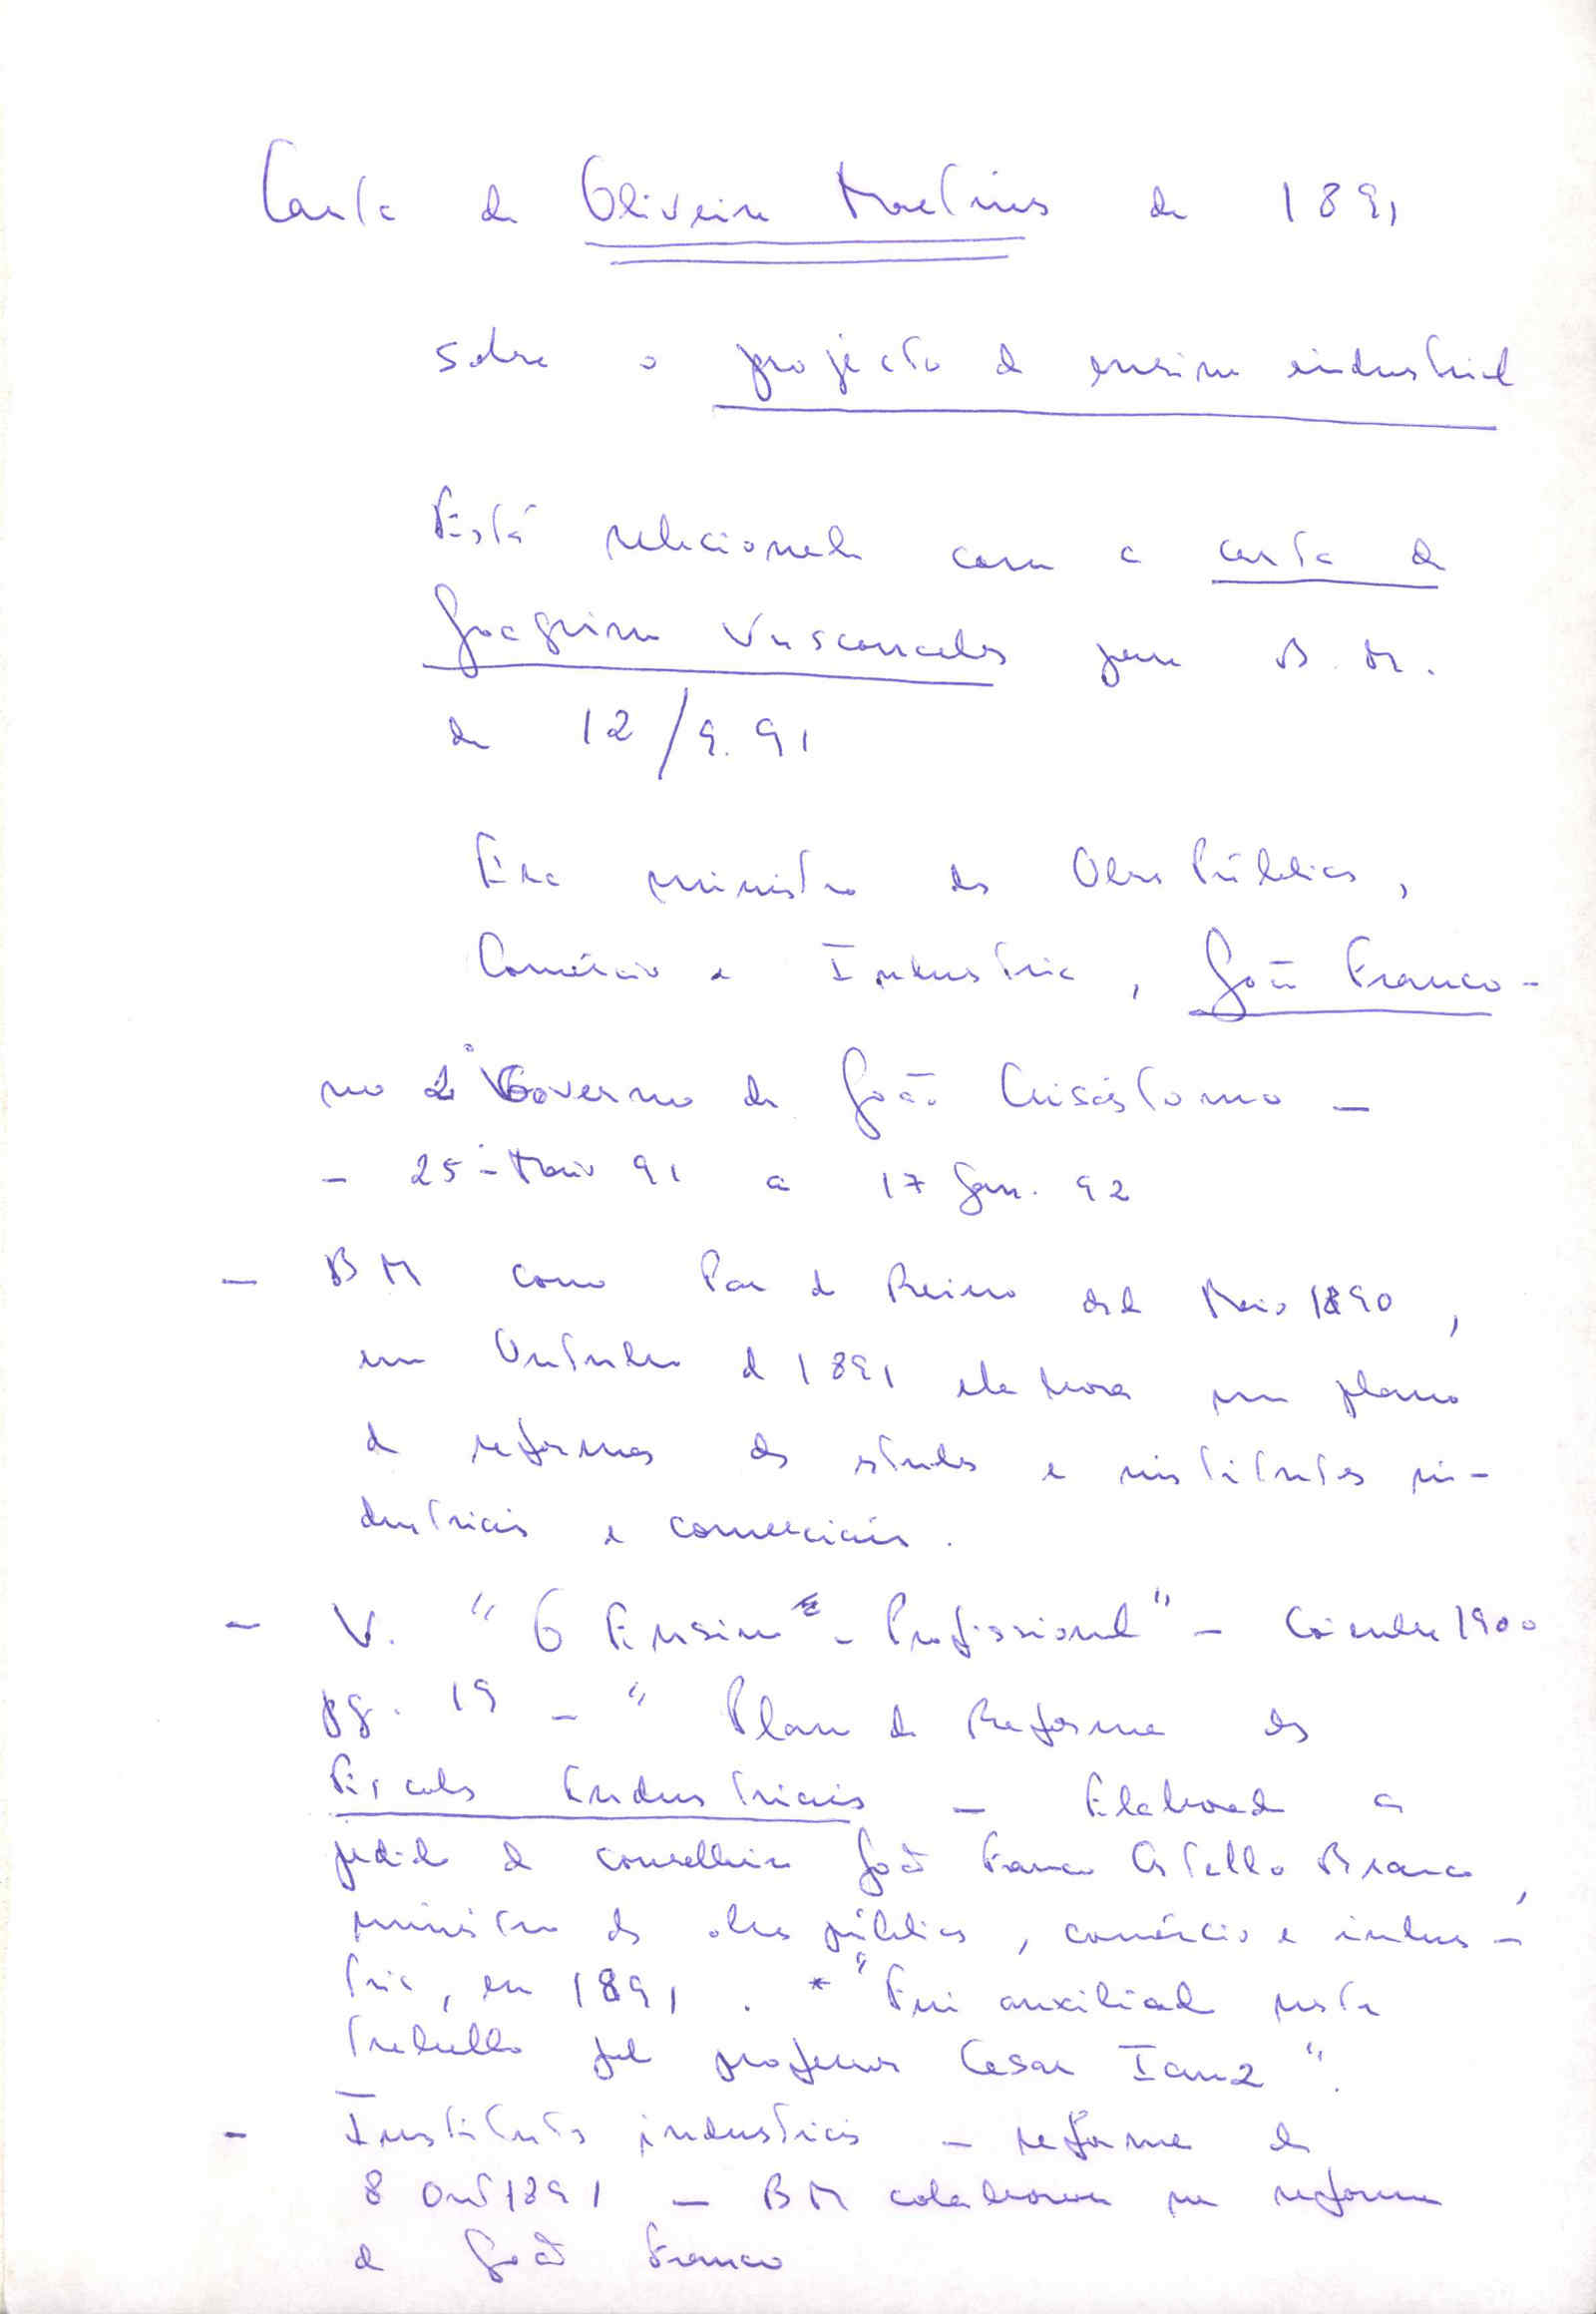 Carta de Oliveira Martins de 1891
sobre o projecto de ensino industrial
Está relacionada com a carta de
Joaquim Vasconcelos para B. M.
de 12/9.91
Era ministro das Obras Públicas,
Comércio e Industria, João Franco -
no 2º Governo de João Crisóstomo -
- 25 - Maio 91 a 17 Jan. 92
- BM como Par do Reino desde Maio 1890,
em Outubro de 1891 elabora um plano
de reformas dos estudos e institutos in-
dustriais e comerciais.
- V. "O Ensino - Profissional" - Coimbra 1900
pg. 19 - "Plano de Reforma das
Escolas Industriais - Elaborado a
pedido do conselheiro João Franco Castello Branco,
ministro das obras públicas, comércio e indus-
tria, em 1891. * "Fui auxiliado nesta
trabalho pelo professor Cesar Ianz".
- Instituto industriais - reforma de
8 Out 1891 - BM colaborou na reforma
de João Franco